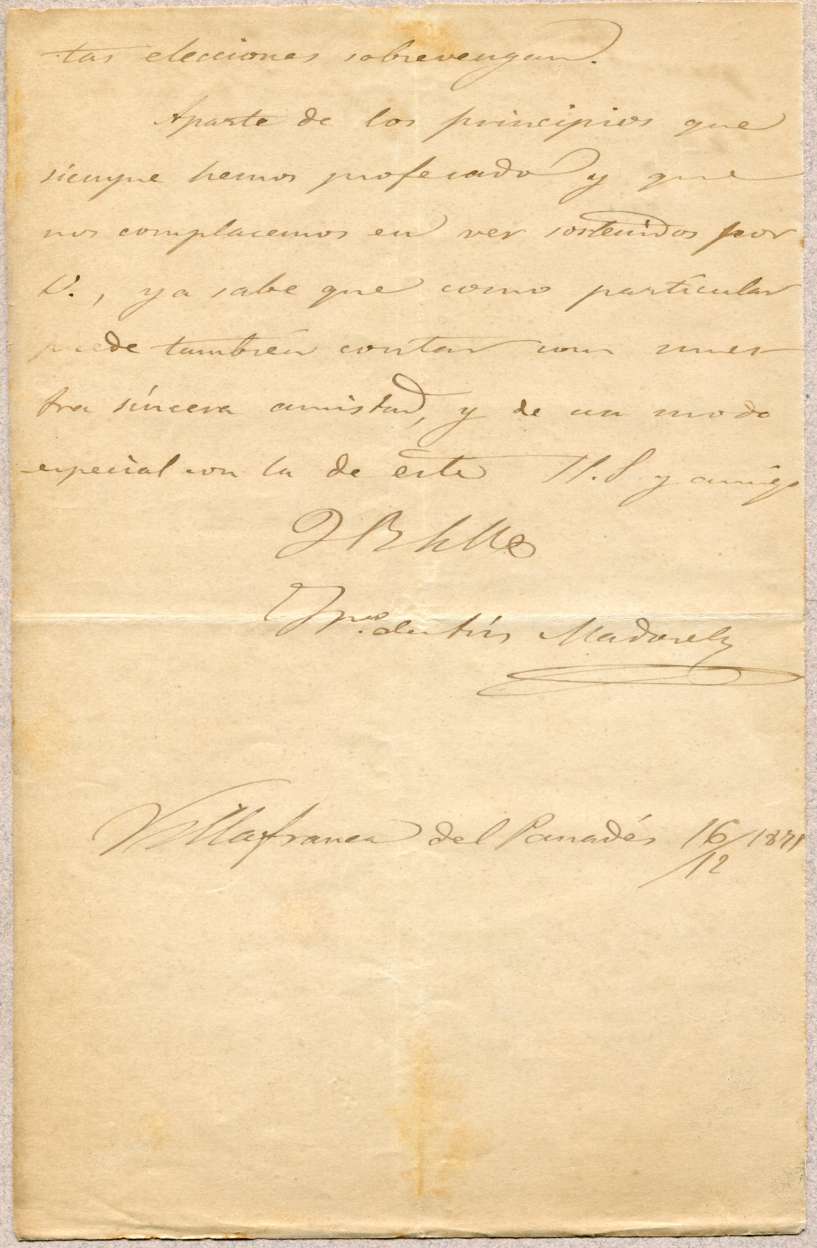 tas elecciones sobrevengan.
Aparte de los principios que
siempre hemos profesado y que
nos complacemos en ver sostenidos por
V., ya sabe que como particular
puede tambien contar con nues
tra sincera amistad, y de un modo
especial con la de este S. S. y amigo
Q B S M
Madorell
Villafranca del Panadés 16/12 1871